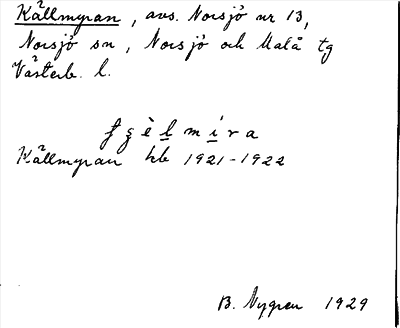 Källmyran, avs. Norsjö nr 13,
Norsjö sn, Norsjö och Malå tg
Västerb. l.
Källmyran hb 1921-1922
B. Nygren 1929